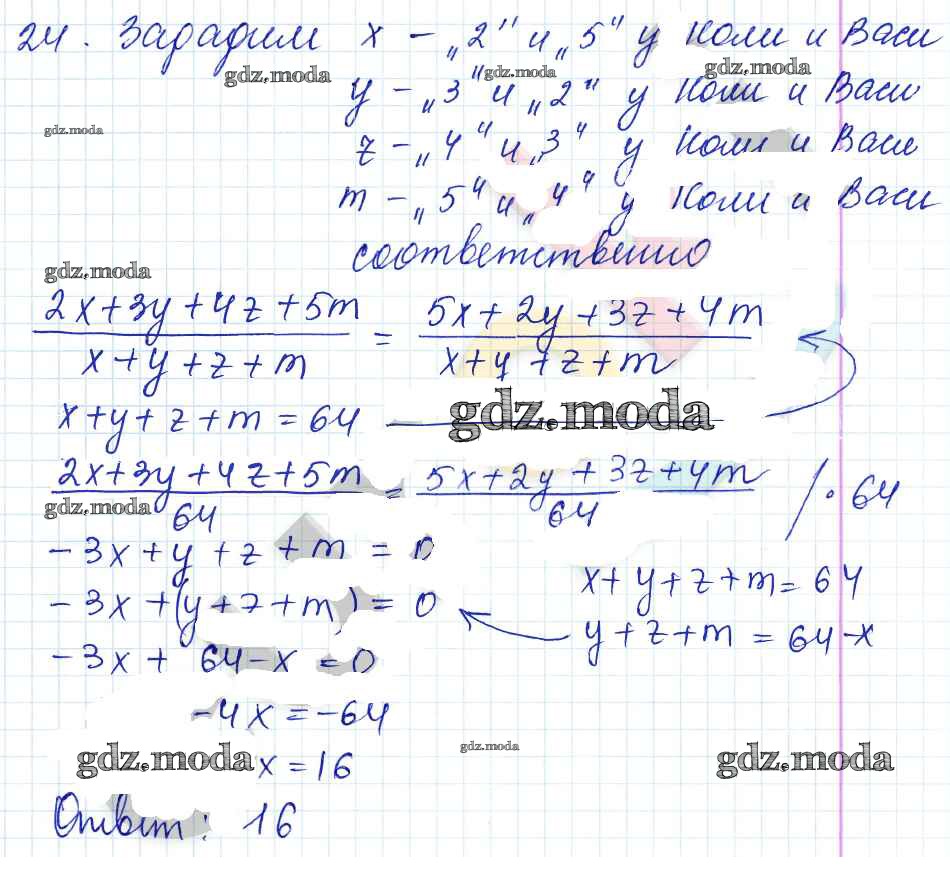 24. Зададим x – „2" и „5" у Коли и Васи
gdz.moda gdz.moda gdz.moda
y – „3" и „2" у Коли и Васи
gdz.moda
z – „4" и „3" у Коли и Васи
m – „5" и „4" у Коли и Васи
соответственно
gdz.moda
2x+3y+4z+5m / x+y+z+m = 5x+2y+3z+4m / x+y+z+m
x+y+z+m = 64
gdz.moda
2x+3y+4z+5m / 64 = 5x+2y+3z+4m / 64 / · 64
gdz.moda
-3x+y+z+m = 0
x+y+z+m = 64
-3x+(y+z+m) = 0
y+z+m = 64-x
-3x+ 64-x = 0
-4x = -64
gdz.moda gdz.moda gdz.moda
x = 16
Ответ: 16